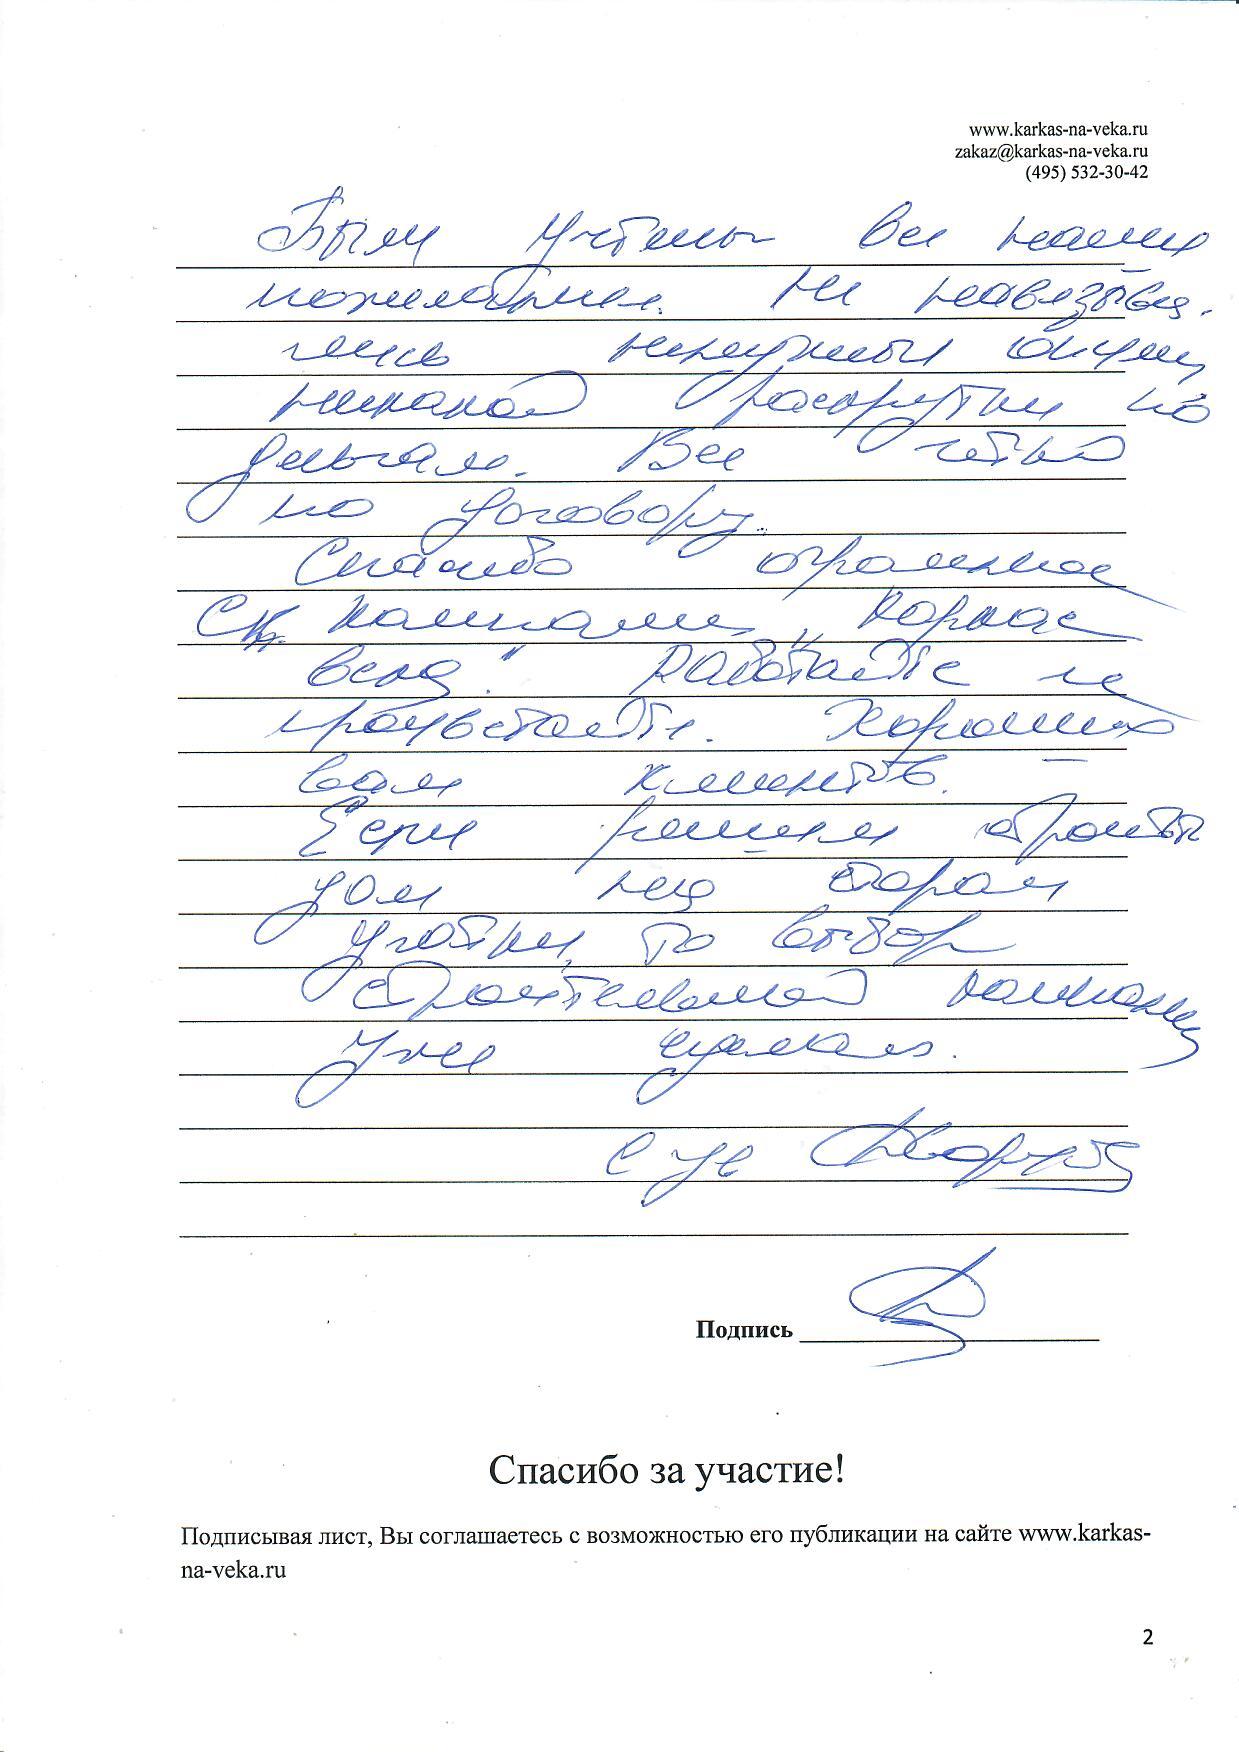 www.karkas-na-veka.ru
zakaz@karkas-na-veka.ru
(495) 532-30-42
Были учтены все наши
пожелания. Не навязыва-
лись ненужные опции,
никакой раскрутки по
деньгам. Все четко
по договору.
Спасибо огромное
Ск компании "Каркас
века." Работайте и
процветайте. Хороших
вам клиентов.
Если решим строить
дом на втором
участке, то выбор
строительной компании
уже сделан.
с ув
Подпись
Спасибо за участие!
Подписывая лист, Вы соглашаетесь с возможностью его публикации на сайте www.karkas-
na-veka.ru
2